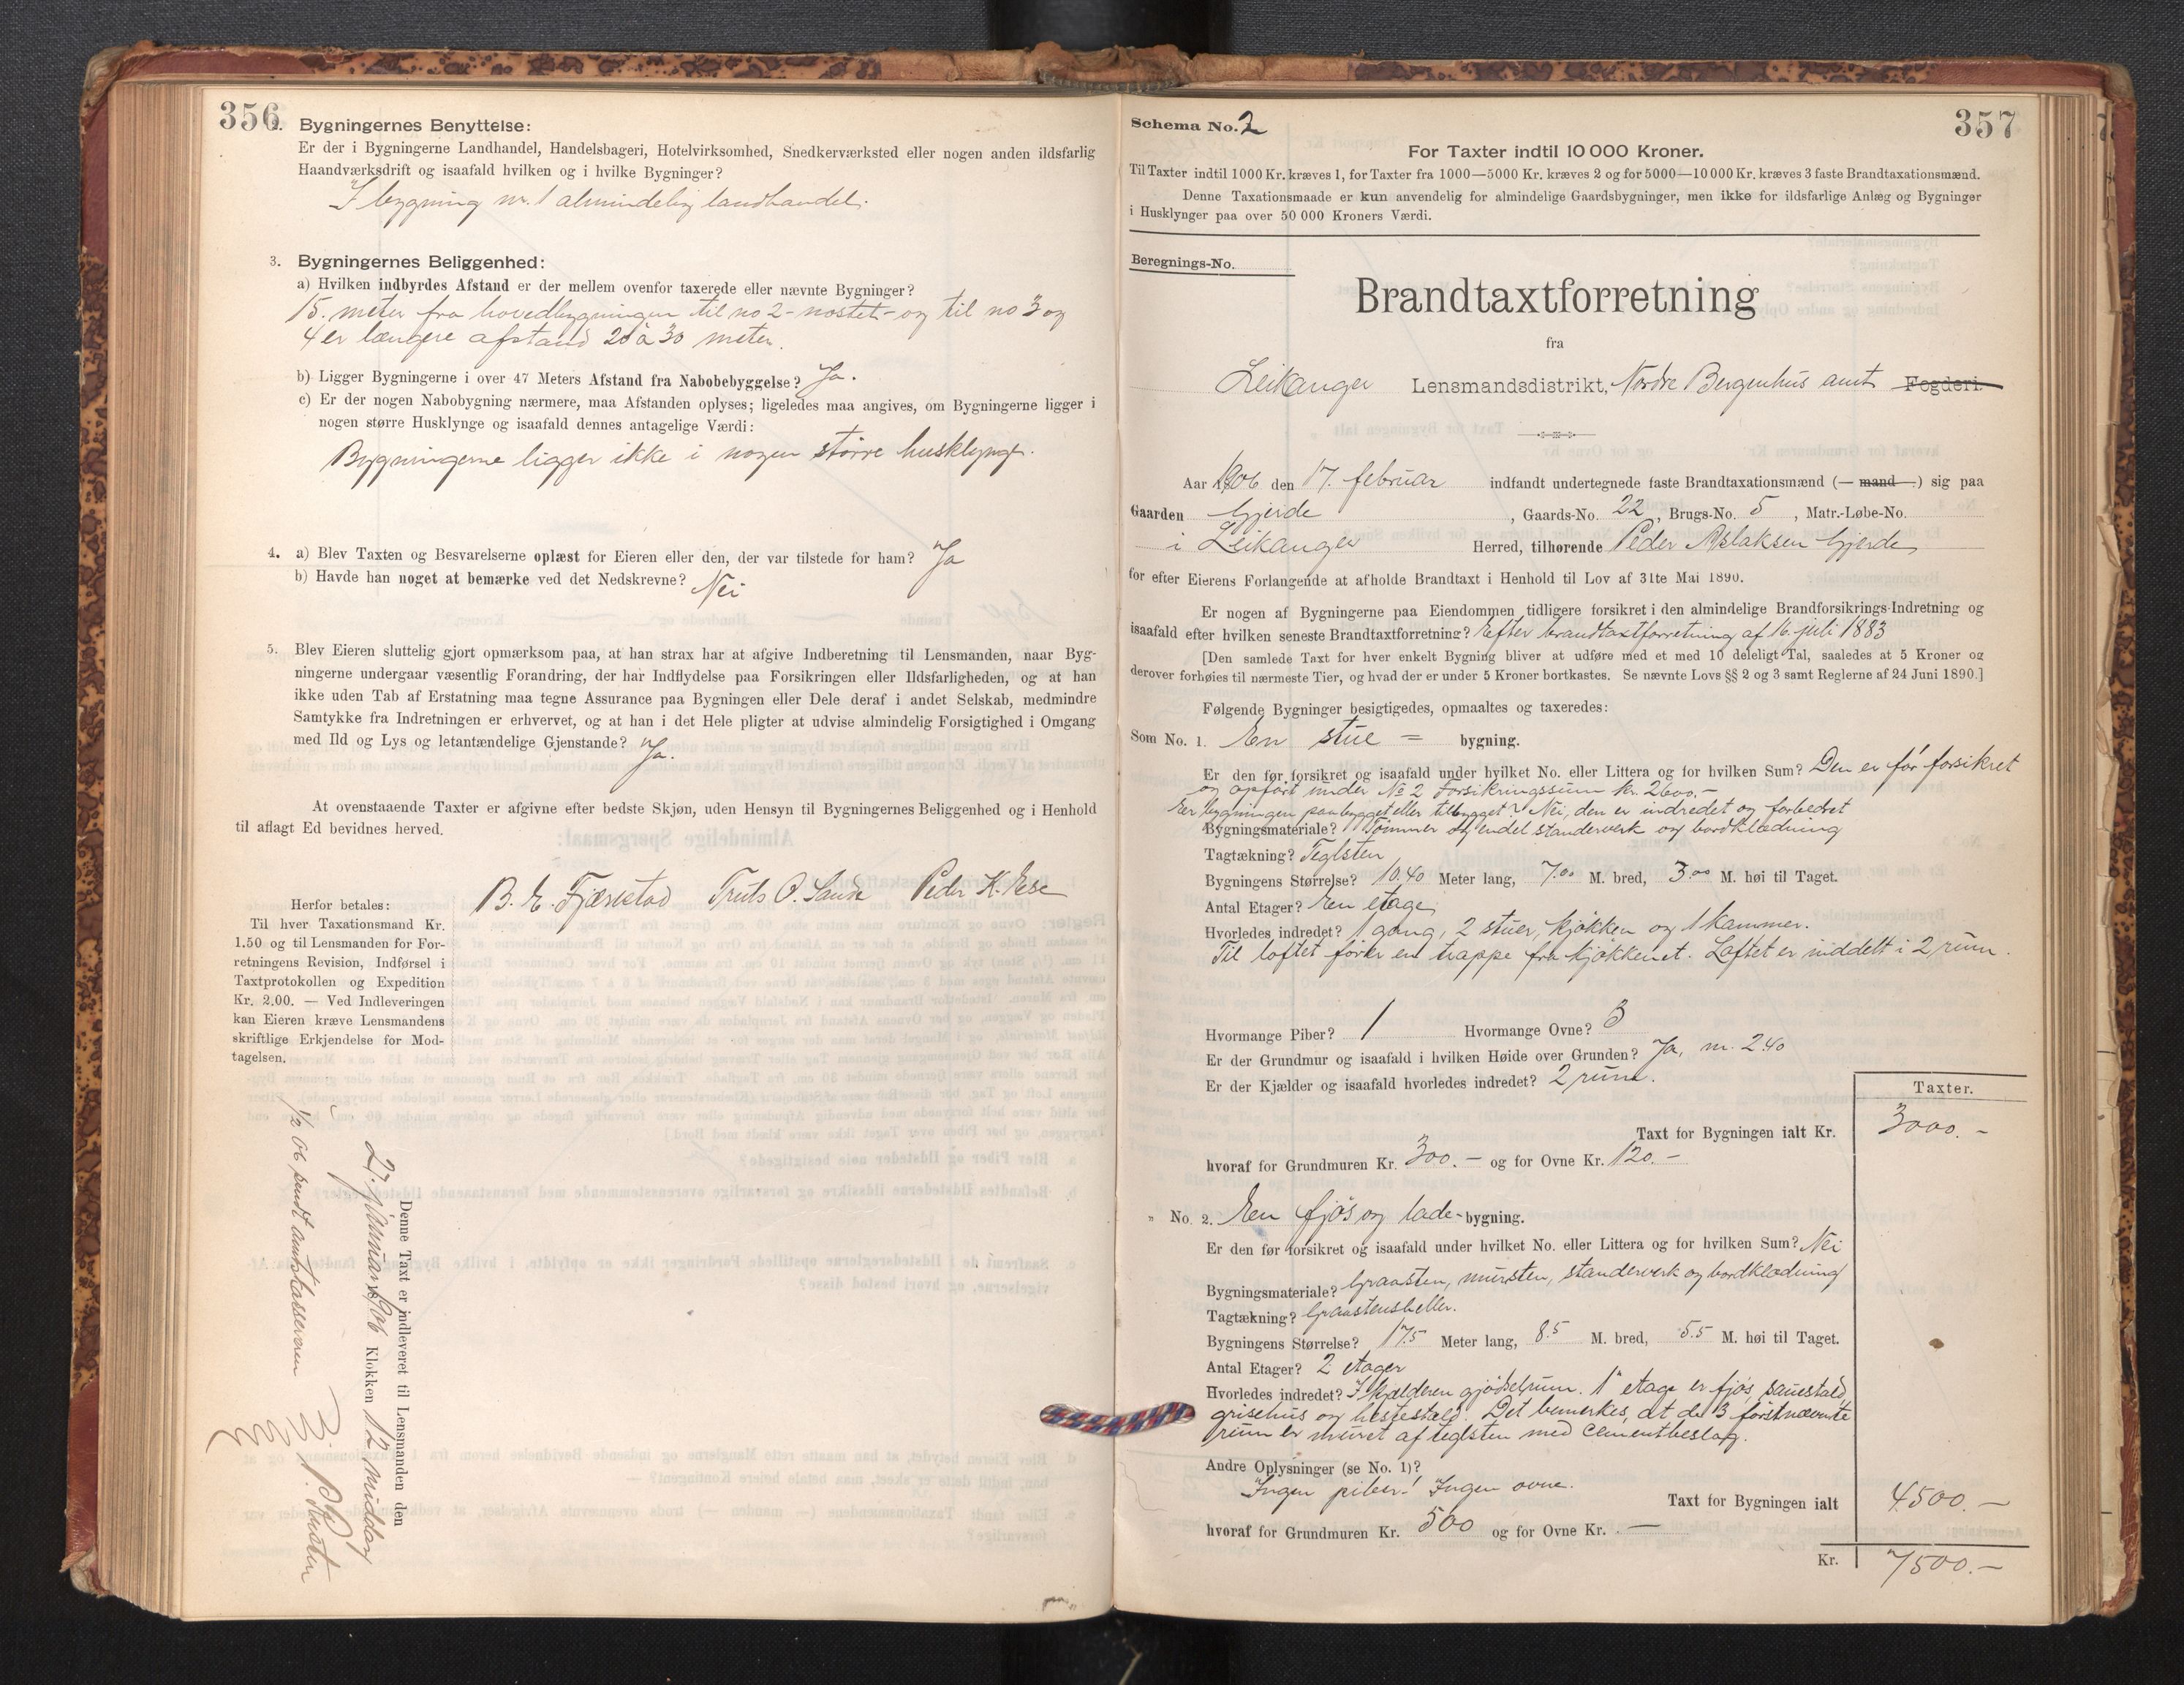 356
2. Bygningernes Benyttelse:
Er der i Bygningerne Landhandel, Handelsbageri, Hotelvirksomhed, Snedkerværksted eller nogen anden ildsfarlig
Haandværksdrift og isaafald hvilken og i hvilke Bygninger?
I bygning nr. 1 almindelig landhandel.
3. Bygningernes Beliggenhed:
a) Hvilken indbyrdes Afstand er der mellem ovenfor taxerede eller nævnte Bygninger?
15. meter fra hovedbygningen til no 2 - nostet - og til no 3 og
4 er længere afstand 20 à 30 meter.
b) Ligger Bygningerne i over 47 Meters Afstand fra Nabobebyggelse? Ja.
c) Er der nogen Nabobygning nærmere, maa Afstanden oplyses; ligeledes maa angives, om Bygningerne ligger i
nogen større Husklynge og isaafald dennes antagelige Værdi:
Bygningerne ligger ikke i nogen større husklynge.
4. a) Blev Taxten og Besvarelserne oplæst for Eieren eller den, der var tilstede for ham? Ja
b) Havde han noget at bemærke ved det Nedskrevne? Nei
5. Blev Eieren sluttelig gjort opmærksom paa, at han strax har at afgive Indberetning til Lensmanden, naar Byg-
ningerne undergaar væsentlig Forandring, der har Indflydelse paa Forsikringen eller Ildsfarligheden, og at han
ikke uden Tab af Erstatning maa tegne Assurance paa Bygningen eller Dele deraf i andet Selskab, medmindre
Samtykke fra Indretningen er erhvervet, og at han i det Hele pligter at udvise almindelig Forsigtighed i Omgang
med Ild og Lys og letantændelige Gjenstande? Ja.
At ovenstaaende Taxter er afgivne efter bedste Skjøn, uden Hensyn til Bygningernes Beliggenhed og i Henhold
til aflagt Ed bevidnes herved.
B. E. Fjærestad Truls O. Sande Peder K. Eese
Herfor betales:
Til hver Taxationsmand Kr.
1.50 og til Lensmanden for For-
retningens Revision, Indførsel i
Taxtprotokollen og Expedition
Kr. 2.00. — Ved Indleveringen
kan Eieren kræve Lensmandens
skriftlige Erkjendelse for Mod-
tagelsen.
Denne Taxt er indleveret til Lensmanden den
27. januar 1906 Klokken 12 middag
1/2 06 sendt amtskasereren
357
Schema No. 2
For Taxter indtil 10 000 Kroner.
Til Taxter indtil 1000 Kr. kræves 1, for Taxter fra 1000—5000 Kr. kræves 2 og for 5000—10 000 Kr. kræves 3 faste Brandtaxationsmænd.
Denne Taxationsmaade er kun anvendelig for almindelige Gaardsbygninger, men ikke for ildsfarlige Anlæg og Bygninger
i Husklynger paa over 50 000 Kroners Værdi.
Beregnings-No.
Brandtaxtforretning
fra
Leikanger Lensmandsdistrikt, Nordre Bergenhus amt Fogderi.
Aar 1906 den 17. februar indfandt undertegnede faste Brandtaxationsmænd (— mand —) sig paa
Gaarden Gjerde, Gaards-No. 22, Brugs-No. 5, Matr.-Løbe-No.
i Leikanger Herred, tilhørende Peder Aslaksen Gjerde
for efter Eierens Forlangende at afholde Brandtaxt i Henhold til Lov af 31te Mai 1890.
Er nogen af Bygningerne paa Eiendommen tidligere forsikret i den almindelige Brandforsikrings-Indretning og
isaafald efter hvilken seneste Brandtaxtforretning? Efter brandtaxtforretning af 16. juli 1883
[Den samlede Taxt for hver enkelt Bygning bliver at udføre med et med 10 deleligt Tal, saaledes at 5 Kroner og
derover forhøies til nærmeste Tier, og hvad der er under 5 Kroner bortkastes. Se nævnte Lovs §§ 2 og 3 samt Reglerne af 24 Juni 1890.]
Følgende Bygninger besigtigedes, opmaaltes og taxeredes:
Som No. 1. En stue = bygning.
Er den før forsikret og isaafald under hvilket No. eller Littera og for hvilken Sum? Den er før forsikret
og opført under No 2 Forsikringssum kr. 2600.-
Er bygningen paabygget eller tilbygget? Nei, den er indredet og forbedret
Bygningsmateriale? Tømmer og endel standerverk og bordklædning
Tagtækning? Teglsten
Bygningens Størrelse? 10.40 Meter lang, 7.00 M. bred, 3.00 M. høi til Taget.
Antal Etager? En etage
Hvorledes indredet? 1 gang, 2 stuer, kjøkken og 1 kammer.
Til loftet fører en trappe fra kjøkkenet. Loftet er inddelt i 2 rum.
Hvormange Piber? 1 Hvormange Ovne? 3
Er der Grundmur og isaafald i hvilken Høide over Grunden? Ja, m. 2.40
Er der Kjælder og isaafald hvorledes indredet? 2 rum.
Taxter.
Taxt for Bygningen ialt Kr. 3000.-
hvoraf for Grundmuren Kr. 300.- og for Ovne Kr. 120.-
" No. 2. En fjøs og lade-bygning.
Er den før forsikret og isaafald under hvilket No. eller Littera og for hvilken Sum? Nei
Bygningsmateriale? Graasten, mursten, standerverk og bordklædning
Tagtækning? Graastensheller.
Bygningens Størrelse? 17.5 Meter lang, 8.5 M. bred, 5.5 M. høi til Taget.
Antal Etager? 2 etager
Hvorledes indredet? I kjælderen gjødselrum. 1ste etage er fjøs, sauestald,
grisehus og hestestald. Det bemerkes, at de 3 førstnævnte
rum er muret af teglsten med cementbeslag.
Andre Oplysninger (se No. 1)?
Ingen piber! Ingen ovne.
Taxt for Bygningen ialt 4500.-
hvoraf for Grundmuren Kr. 500 og for Ovne Kr. —
Kr. 7500.-